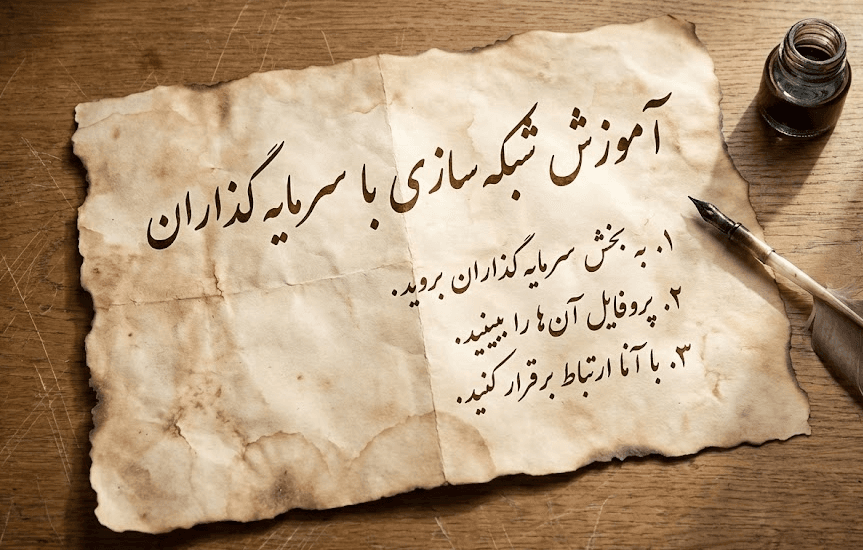 آموزش شبکه‌سازی با سرمایه‌گذاران
۱. به بخش سرمایه‌گذاران بروید.
۲. پروفایل آن‌ها را ببینید.
۳. با آنا ارتباط برقرار کنید.